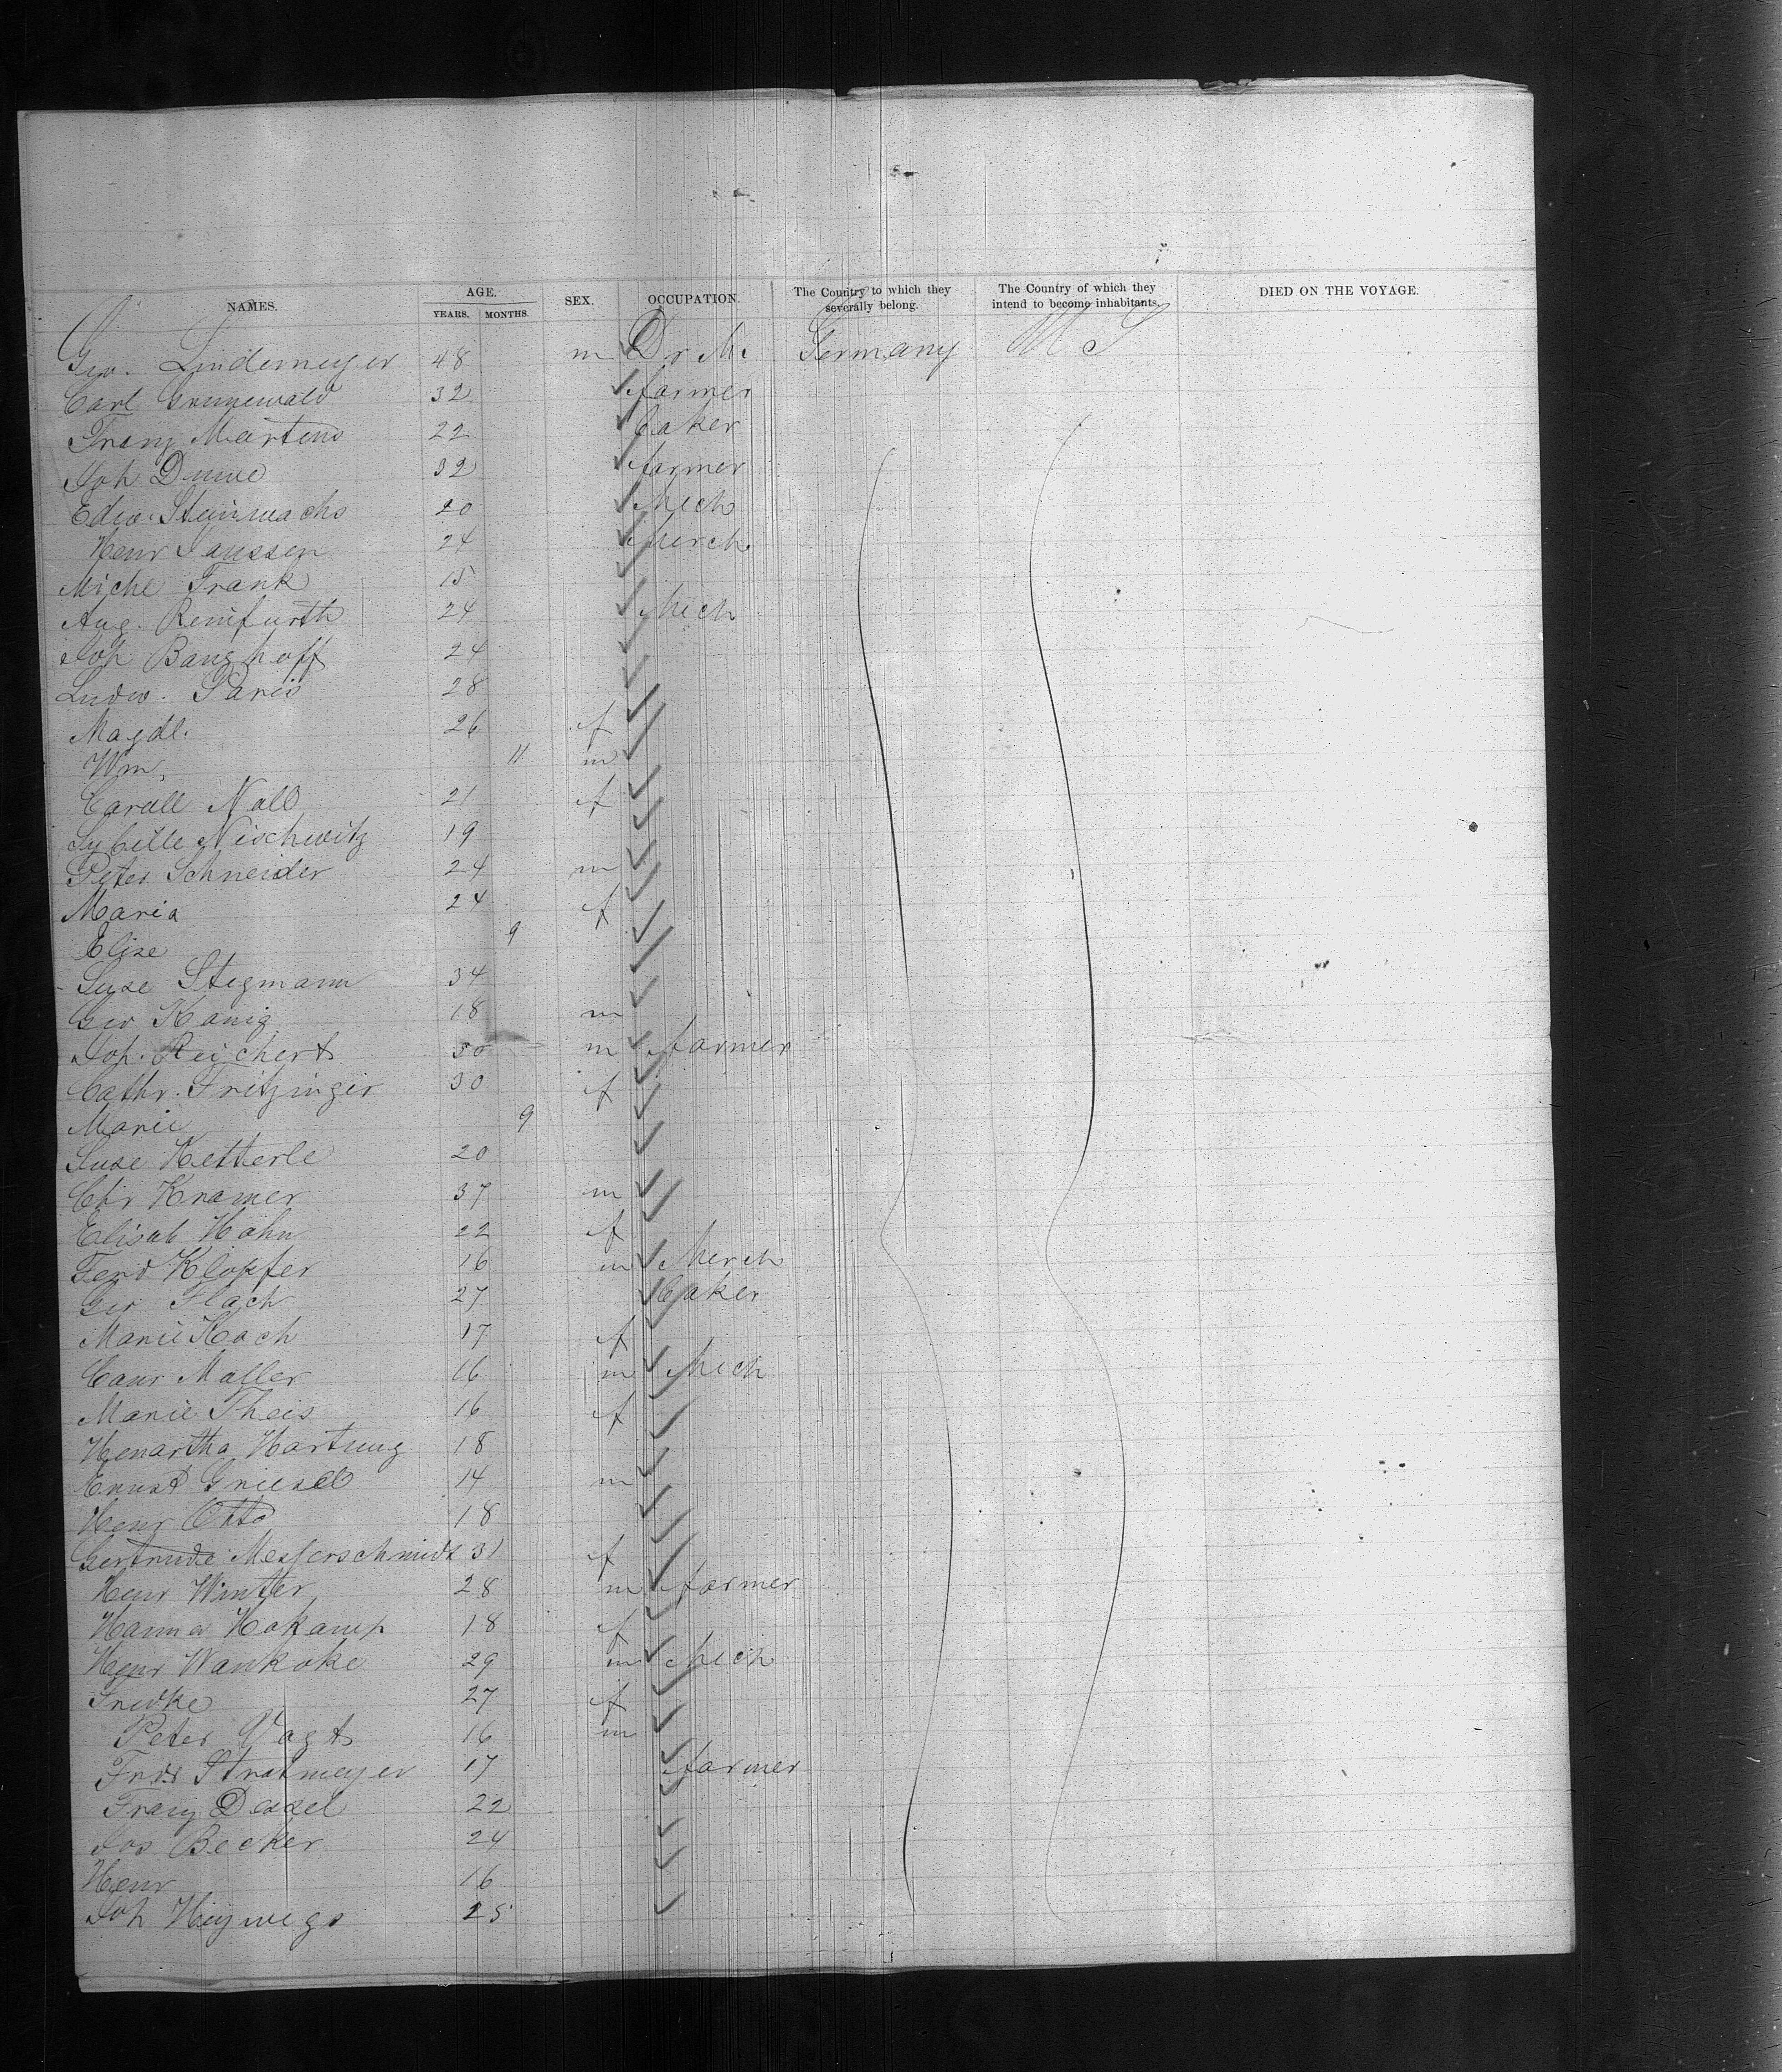 NAMES. AGE. YEARS. MONTHS. SEX. OCCUPATION. The Country to which they severally belong. The Country of which they intend to become inhabitants. DIED ON THE VOYAGE.
Geo. Lindemeyer 48 m Dr M. Germany U S
Carl Grunewald 32 farmer
Franz Martens 22 baker
Joh Dume 32 farmer
Edw. Steinwachs 20 Mech
Henr Janssen 24 Merch
Michl Frank 15
Aug. Remfurth 24 Mech
Joh Banghoff 24
Ludw. Paris 28
Magdl. 26 f
Wm. 11 m
Caroll Noll 21 f
Sybille Nischwitz 19
Peter Schneider 24 m
Maria 24 f
Elise 9
Luse Stegmann 34
Geo Konig 18 m
Joh. Reichert 50 m farmer
Cathr. Fritzinger 30 f
Marie 9
Luse Ketterle 20
Chr Kramer 37 m
Elisab Hahn 22 f
Ferd Klopfer 16 m Merch
Geo Flach 27 baker
Marie Koch 17 f
Conr Moller 16 m Mech
Marie Theis 16 f
Henartha Hartung 18
Ernst Griesel 14 m
Henr Otto 18
Gertrude Messerschmidt 31 f
Henr Winter 28 m farmer
Hanna Hokamp 18 f
Henr Wankoke 29 m Mech
Fredke 27 f
Peter Vogt 16 m
Frdr Stratmeyer 17 farmer
Franz Dexel 22
Jos Becker 24
Henr 16
Joh Heywegs 25